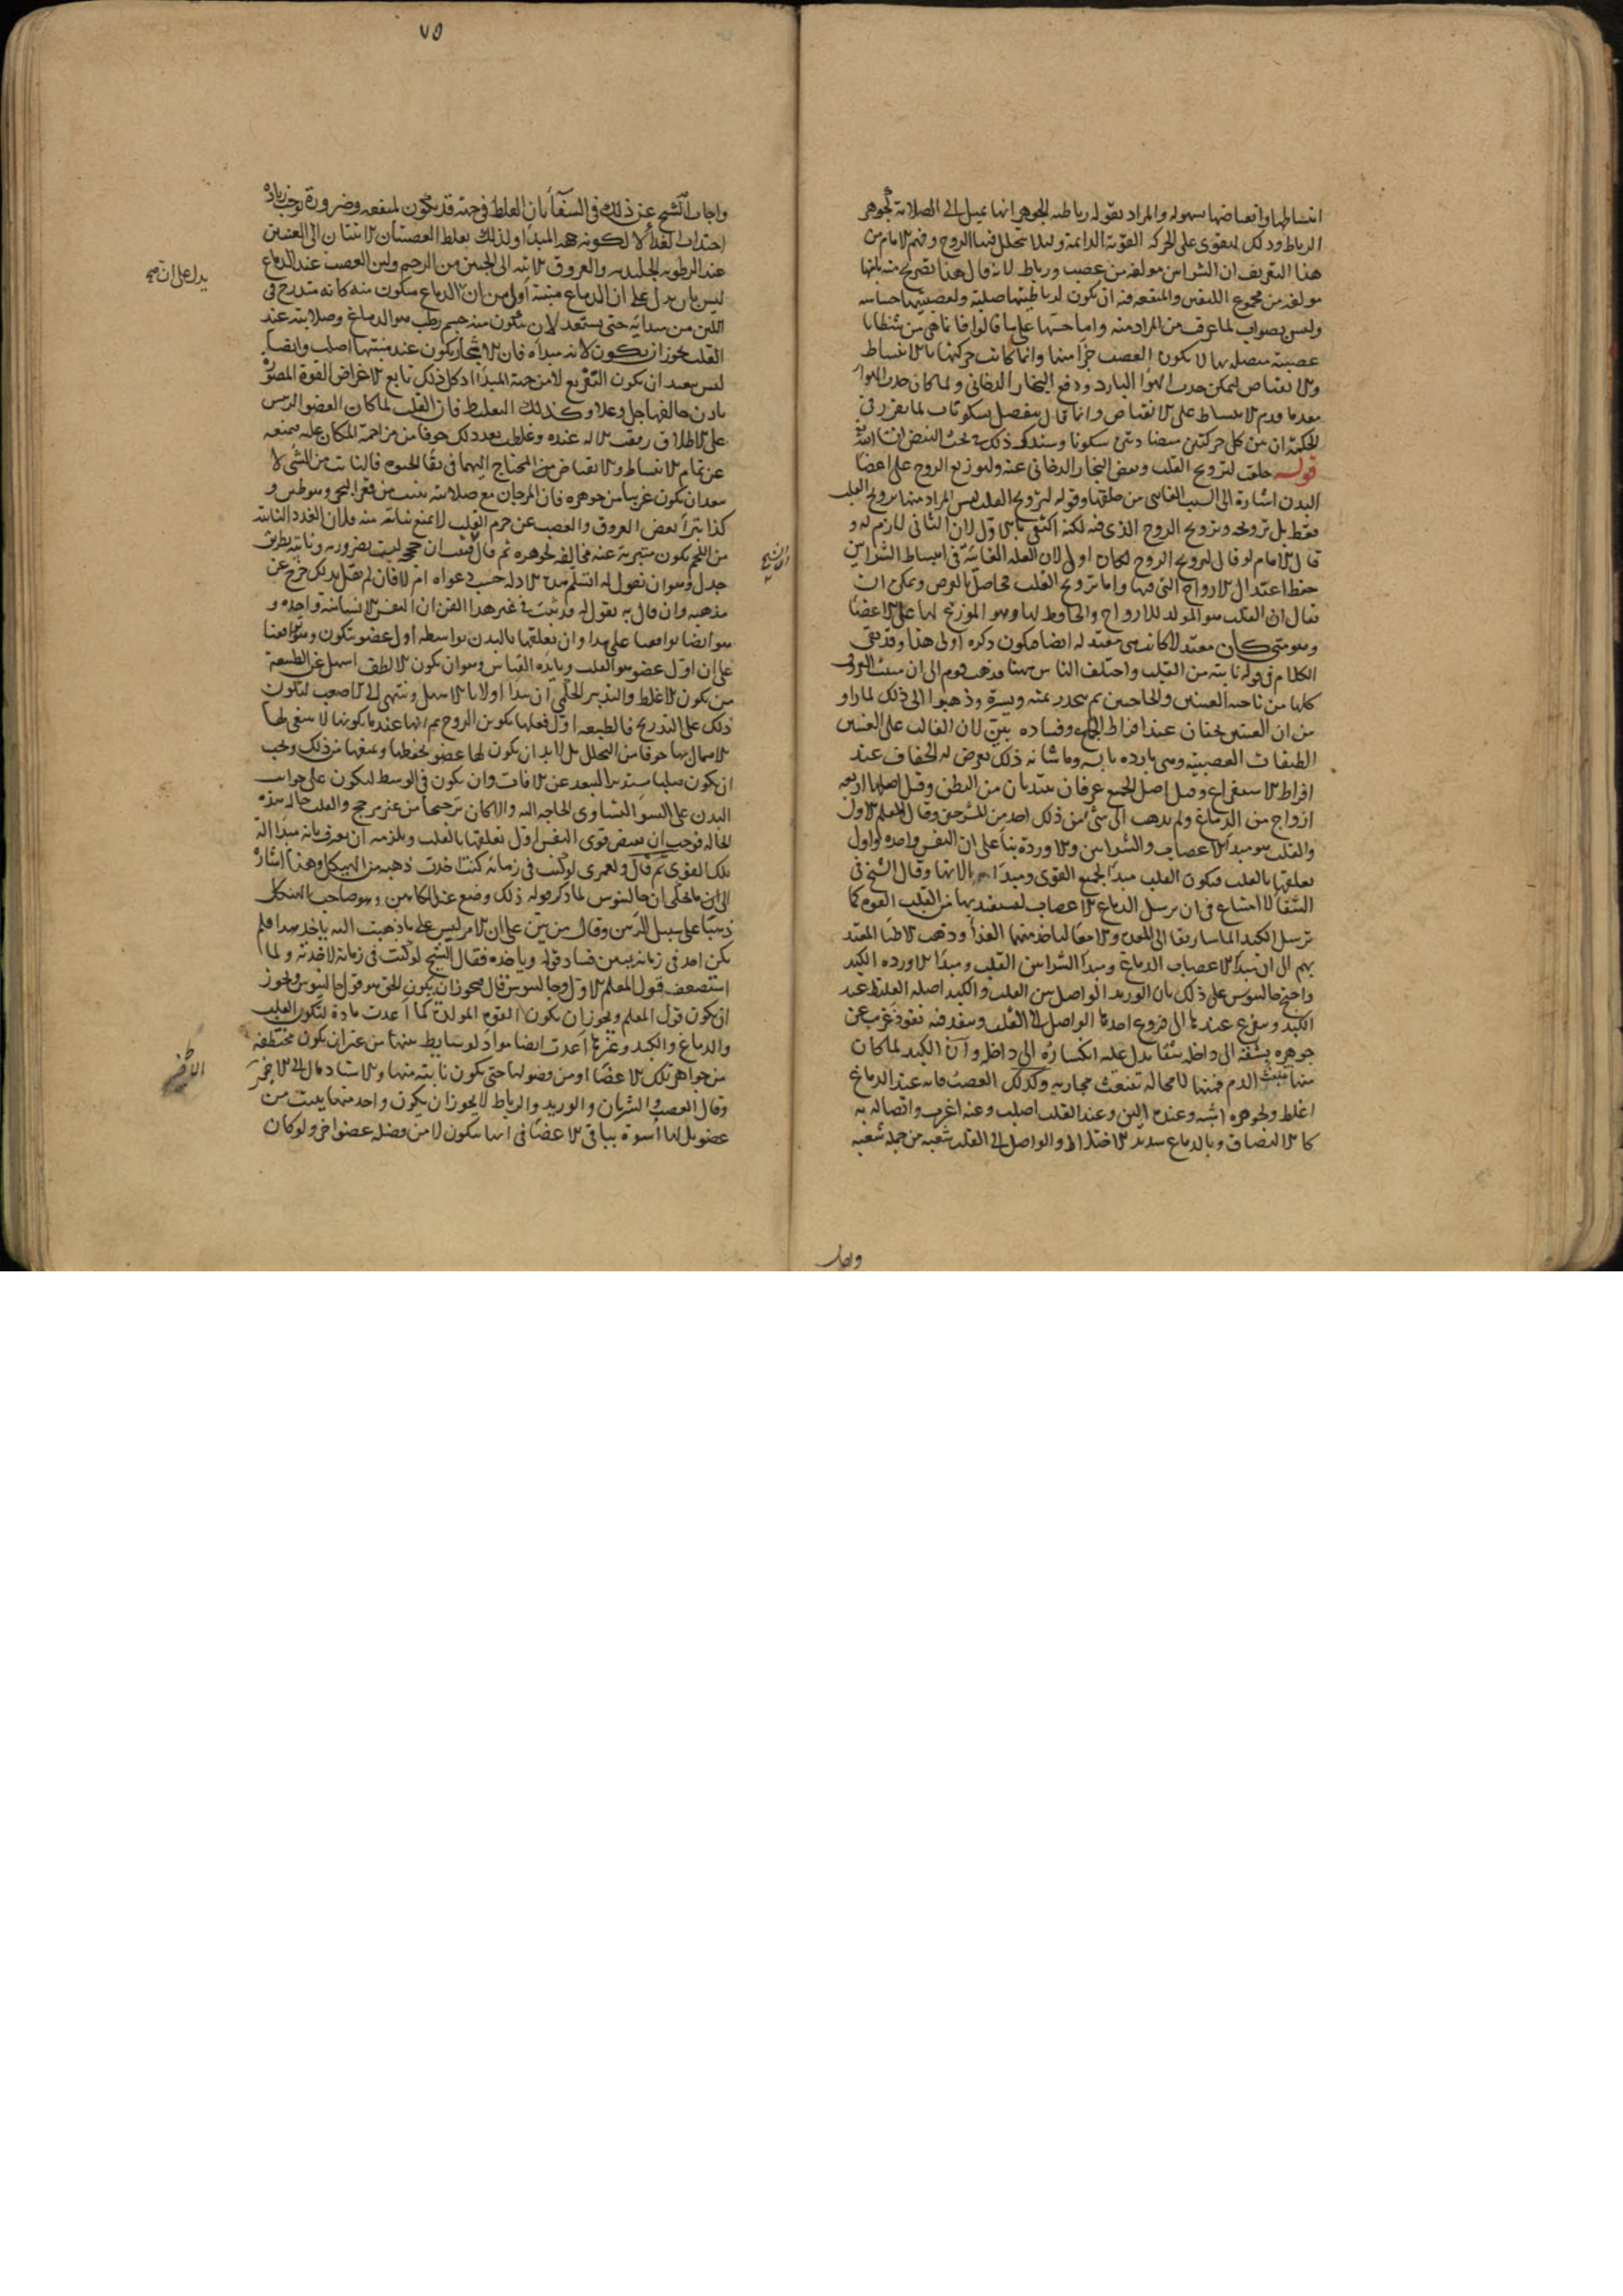 انبساطها وانقباضها بسهولة والمراد بقوله رباطية الجوهر انها تميل الى الصلابة كجوهر
الرباط وذلك لتقوى على الحركة القوية الدائمة ولئلا يتحلل فيها الروح وفهم الامام من
هذا التعريف ان الشرايين مولفة من عصب ورباط لانه قال هذا تصريح منه بانها
مولفة من مجموع الليفين والمنفعة فيه ان يكون لرباطيتها صلبة ولعصبيتها حساسة
وليس بصواب لما عرفت من المراد منه واما حسها على ما قالوا فانما هي من شظايا
عصبية متصلة بها لا بكون العصب جزأ منها وانما كانت حركتها بالانبساط
والانقباض ليمكن جذب الهواء البارد ودفع البخار الدخاني ولما كان جذب الهواء
الانبساط على الانقباض وانما قال ينفصل بسكونات لما تقرر في
الحكمة ان بين كل حركتين سكونا وسنذكر ذلك في بحث النبض ان شاء الله
قوله خلقت لترويح القلب ونفض البخار الدخاني عنه ولتوزيع الروح على اعضاء
البدن اشارة الى السبب الغائي من خلقتها وقوله لترويح القلب ليس المراد منها ترويح القلب
فقط بل ترويحه وترويح الروح الذي فيه لكنه اكتفى بالاول لان الثاني لازم له و
قال الامام لو قال لترويح الروح لكان اولى لان العلة الغائية في انبساط الشرايين
حفظ اعتدال الارواح التي فيها واما ترويح القلب فحاصل بالعرض ويمكن ان
يقال ان القلب هو المولد للارواح والحافظ لها وهو الموزع لها على الاعضاء
ومتى كان معتدلا كانت هي معتدلة ايضا فيكون ذكره اولى هذا وقد بقى
الكلام في قوله نابتة من القلب واختلف الناس ههنا فذهب قوم الى ان منبت العروق
كلها من ناحية العينين والحاجبين ثم ينحدر يمنة ويسرة وذهبوا الى ذلك لما راوا
من ان العينين يجفان عند افراط الجماع وفساده بين لان الغالب على العينين
الطبقات العصبية وهي باردة يابسة وما شانه ذلك يعرض له الجفاف عند
افراط الاستفراغ وقيل اصل الجميع عرقان يبتديان من البطن وقيل اصلها اربعة
ازواج من الدماغ ولم يذهب الى شيء من ذلك احد من المشرحين وقال المعلم الاول
والقلب هو مبدأ الاعصاب والشرايين والاوردة بناء على ان النفس واحدة واول
تعلقها بالقلب فيكون القلب مبدأ لجميع القوى ومبدأ لالاتها وقال الشيخ في
الشفا لا امتناع في ان يرسل الدماغ الاعصاب ليستفيد بها من القلب القوة كما
ترسل الكبد الماساريقا الى المعدة والامعا لياخذ منهما الغذأ وذهب الاطبا المعتد
بهم الى ان مبدأ الاعصاب الدماغ ومبدأ الشرايين القلب ومبدأ الاوردة الكبد
واحتج جالينوس على ذلك بان الوريد الواصل بين القلب والكبد اصله الغليظ عند
الكبد ويتفرع عندها الى فروع احدها الواصل الى القلب وينفذ فيه نفوذ غريب عن
جوهره يشقه الى داخله شقا يدل عليه انكساره الى داخله وان الكبد لما كان
منها منبث الدم فمنها لا محالة تنبعث مجاريه وكذلك العصب فانه عند الدماغ
اغلظ وبجوهره اشبه وعنده الين وعند القلب اصلب وعنه اغرب واتصاله به
كالالتصاق وبالدماغ شديد الاختلاط والواصل الى القلب شعبة من جملة شعبه
واجاب
٧٥
واجاب الشيخ عن ذلك في الشفا بان الغلظ في جهة قد يكون لمنفعة وضرورة توجب زيادة
اجتذاب الغذأ لا لكونه جهة المبدأ ولذلك يغلظ العصبتان الاتيتان الى العينين
عند الرطوبة الجليدية والعروق الاتية الى الجنين من الرحم ولين العصب عند الدماغ
ليس بان يدل على ان الدماغ منبته اولى من ان الدماغ سكون منه كانه متدرج في
يدل على ان صح
اللين من مبدائه حتى يستعد لان يتكون منه جسم رطب هو الدماغ وصلابته عند
القلب يجوز ان يكون لانه مبدأه فان الاشجار يكون عند منبتها اصلب وايضا
ليس يبعد ان يكون التفريع لا من جهة المبدأ اذ كل ذلك تابع لاغراض القوة المصورة
باذن خالقها جل وعلا وكذلك التغليظ فان القلب لما كان العضو الرئيس
على الاطلاق رققت الالة عنده وغلظت بعد ذلك خوفا من مزاحمة المكان عليه فيمنعه
عن تمام الانبساط والانقباض المحتاج اليهما في بقا الحيوة فالنابت من الشي لا
يبعد ان يكون غريبا من جوهره فان المرجان مع صلابته ينبت من قعر البحر
كذا تبرأ بعض العروق والعصب عن جرم القلب لا يمنع نباته منه ولان الغدد النابتة
من اللحم يكون متبرية عنه مخالفة لجوهره ثم قال فتبين ان حججه ليست بضرورية وثابته بطريق
الشيخ
جدل وهو ان نقول له اتسلم هذه الادلة حسب دعواه ام لا فان لم يقل بذلك خرج عن
مذهبه وان قال به نقول له قد ثبت في غير هذا الفن ان النفس الانسانية واحدة و
هو ايضا يوافقنا على هذا وان تعلقها بالبدن بواسطة اول عضو يتكون وهو يوافقنا
على ان اول عضو هو القلب ويايده القياس وهو ان يكون الالطف اسهل على الطبيعة
من يكون الاغلظ والتدبير الحكمي ان يبدأ اولا بالاسهل وينتهى الى الاصعب لتكون
ذلك على التدريج فالطبيعة اول فعلها يكون الروح ثم انها عند ما يكونها لا يبقى لها
الاهمال بها خوفا من التحلل بل لابد ان يكون لها عضو يحفظها ويمنعها من ذلك ويجب
ان يكون صلبا مستديرا لبعد عن الافات وان يكون في الوسط ليكون على جوانب
البدن على السوأ لتساوى الحاجة اليه والا كان ترجيحا من غير مرجح والقلب حاله هذه
الحالة فوجب ان يفيض قوى النفس اول تعلقها بالقلب ويلزمه ان يعرف بانه مبدأ الة
تلك القوى ثم قال ولعمرى لو كنت في زمانه كنت اخذت ذهبه من الهيكل وهذا اشارة
الى ما يحكى ان جالينوس لما ذكر قوله ذلك وضع عند الكاهن وهو صاحب الهيكل
ذهبا على سبيل الرهن وقال من بين على ان الامر ليس على ما ذهبت اليه ياخذ هذا فلم
يكن احد في زمانه يبين فساد قوله وياخذه فقال الشيخ لو كنت في زمانه لاخذته ولما
استضعف قول المعلم الاول وجالينوس قال فيجوز ان يكون الحق هو قول جالينوس ويجوز
ان يكون قول المعلم ويجوز ان يكون القوة المولدة كما اعدت مادة لتكون القلب
والدماغ والكبد وغيرها اعدت ايضا مواد لوسايط بينها من غير ان يكون مختطفة
من جواهر تلك الاعضا او من فضولها حتى يكون نابتة منها والاستاد مال الى الاخير
وقال العصب والشريان والوريد والرباط لا يجوز ان يكون واحد منها ينبت من
عضو بل لها اسوة بباقى الاعضا في انها يتكون لا من فضلة عضو اخر ولو كان